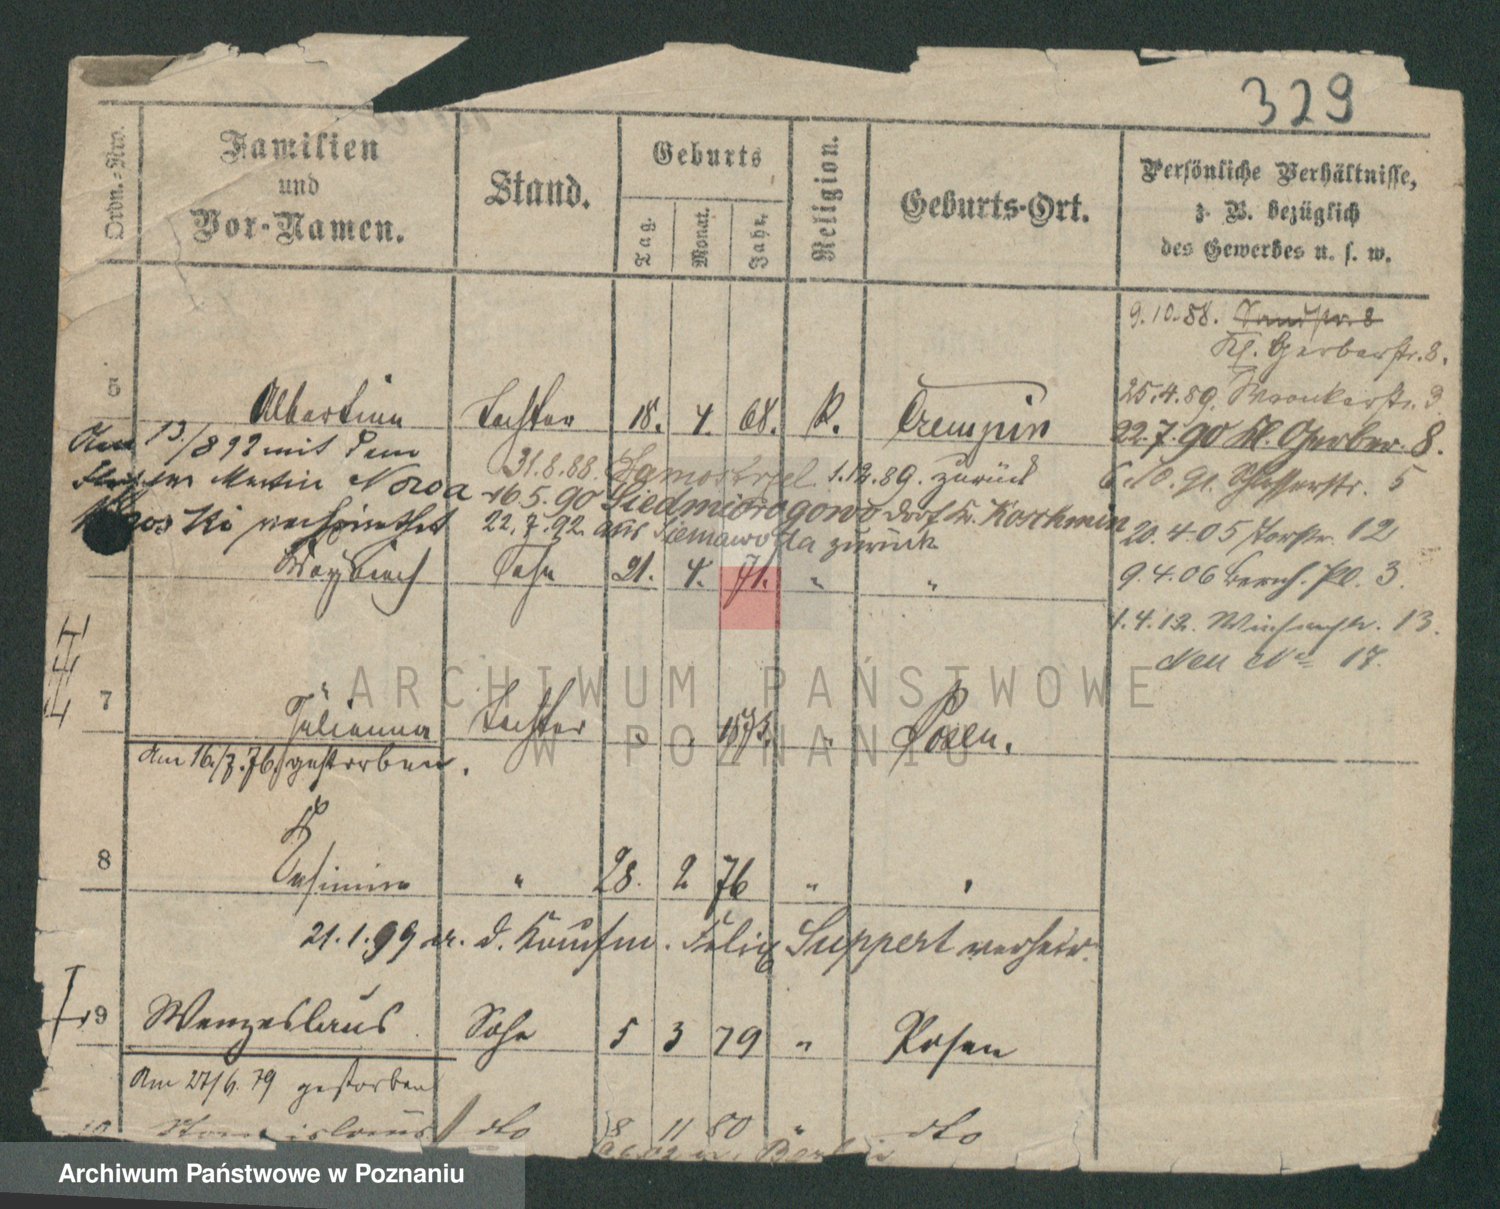 329
Ordn.-Nro.
Familien
und
Vor-Namen.
Stand.
Geburts
Tag.
Monat.
Jahr.
Religion.
Geburts-Ort.
Persönliche Verhältnisse,
z. B. bezüglich
des Gewerbes u. s. w.
9.10.88.
Kl. Gerberstr. 8.
5 Albertine Tochter 18. 4. 68. K. Czempin
25.4.89. Wronkerstr. 3.
22.7.90 Kl. Gerber. 8.
Am 13/8 92 mit dem
31.8.88. 1.12.89. zurück
6.10.91. Schlosserstr. 5
Martin Nowa
16.5.90 Siedmiorogowo Dorf Kr. Koschmin
kowski verheirathet
22.7.92. aus zurück
20.4.05 Torstr. 12
Sohn 21. 4. 71. " "
9.4.06 Bernh. Pl. 3.
1.4.12. 13.
Neu No 17.
7 Julianna Tochter " " 1873. " Posen.
Am 16/7.76. gestorben.
8 Casimira " 28. 2 76 " "
21.1.99 m. d. Kaufm. Felix Suppert verheir.
9 Wenzeslaus Sohn 5 3 79 " Posen
Am 27/6.79 gestorben
10 Stanislaus dto 8 11 80 " dto
Berlin
ARCHIWUM PAŃSTWOWE
W POZNANIU
Archiwum Państwowe w Poznaniu